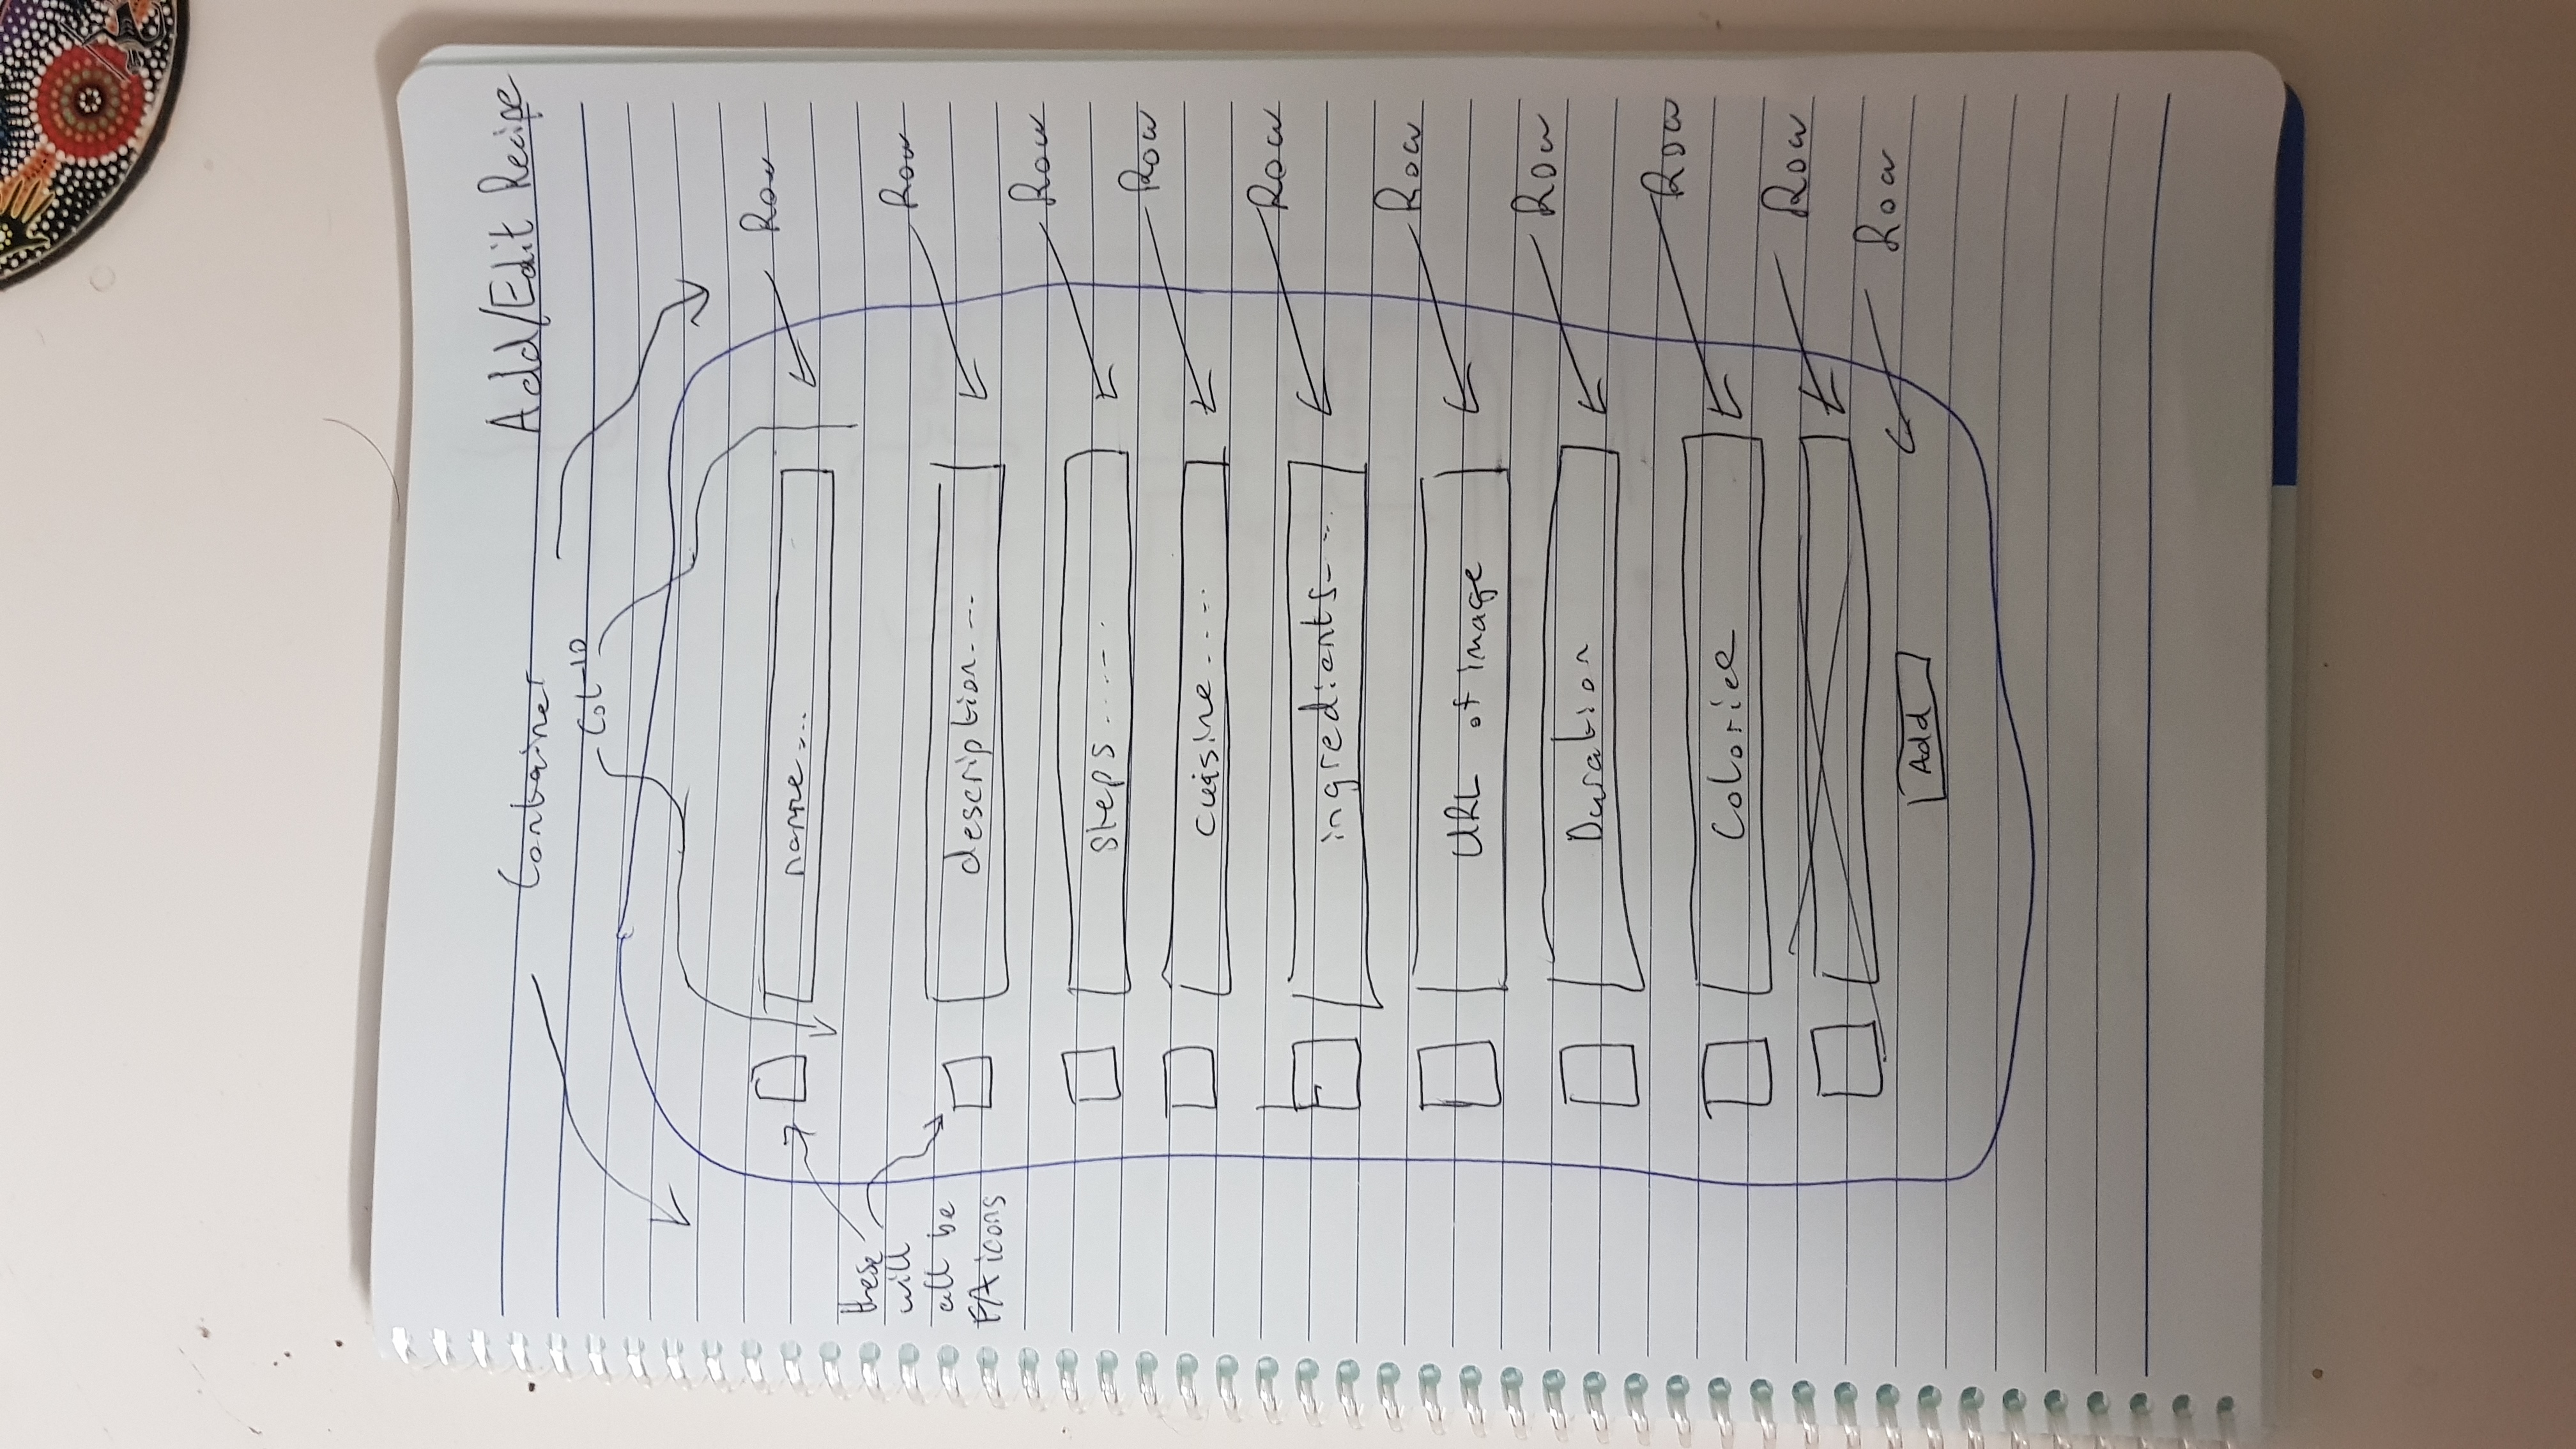 Add/Edit Recipe
Container
Col-10
name...
Row
these
will
all be
FA icons
description....
Row
steps......
Row
cuisine.....
Row
ingredients....
Row
URL of image
Row
Duration
Row
Coloriee
Row
Row
Add
Row